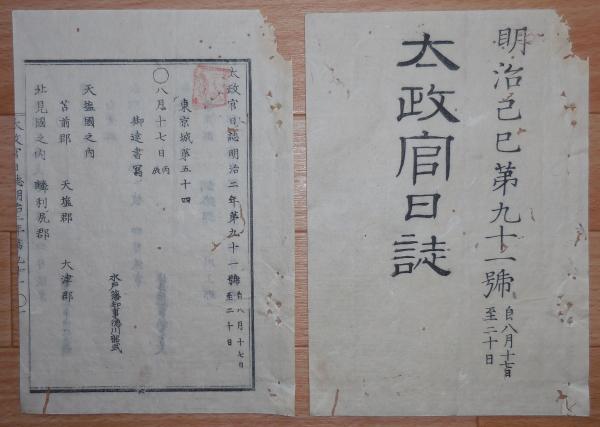 明治己巳第九十一號 自八月十七日至二十日
太政官日誌
太政官日誌明治二年第九十一號 自八月十七日至二十日
東京城第五十四
○八月十七日 丙辰
御達書寫
水戸藩知事徳川昭武
天塩國之内
苫前郡 天塩郡 大津郡
北見國之内
利尻郡
太政官日誌明治二年第九十一